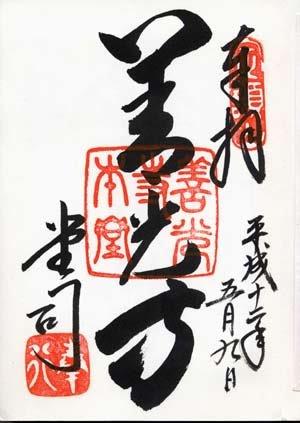 奉拝
善光寺
善光寺本堂
平成十二年
五月九日
堂司